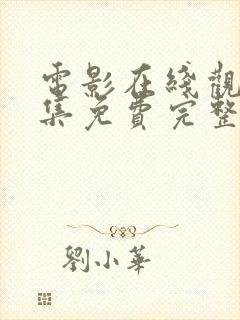 電影在綫觀
集免費完整
劉小華